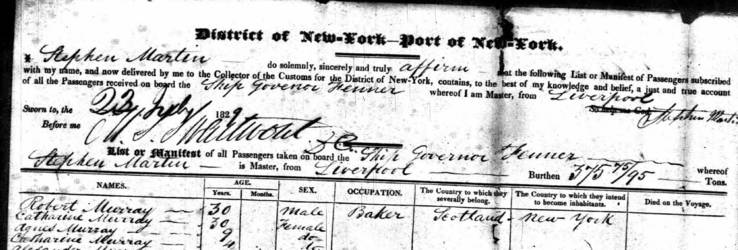 District of New-York—Port of New-York.
I Stephen Martin do solemnly, sincerely and truly affirm that the following List or Manifest of Passengers subscribed
with my name, and now delivered by me to the Collector of the Customs for the District of New-York, contains, to the best of my knowledge and belief, a just and true account
of all the Passengers received on board the Ship Govenor Fenner whereof I am Master, from Liverpool
Sworn to, the 22 July 1829 Stephen Martin
Before me
List or Manifest of all Passengers taken on board the Ship Governor Fenner whereof
Stephen Martin is Master, from Liverpool Burthen 375 75/95 Tons.
NAMES. AGE. Years. Months. SEX. OCCUPATION. The Country to which they severally belong. The Country to which they intend to become inhabitants. Died on the Voyage.
Robert Murray 30 Male Baker Scotland New York
Catharine Murray 30 Female
Agnes Murray 9 do
Catharine Murray 4 do